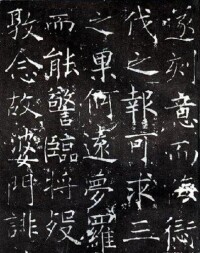 遂刻意而悔愆
伐之報可求三
之果何遠夢羅
而能驚臨將歿
敦念故婆門誹